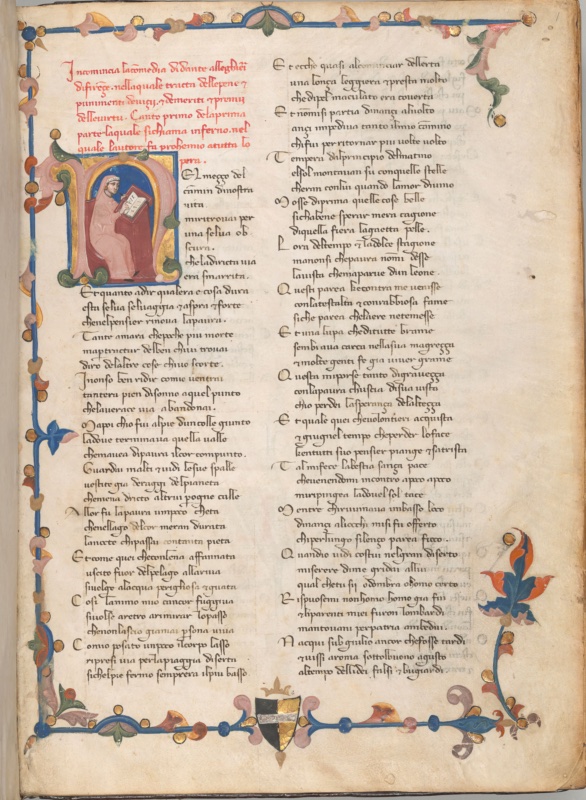 Incomincia lacomedia di dante alleghieri
difirẽçe. nellaquale tracta dellepene ⁊
punimenti deuiçij. ⁊ demeriti ⁊ premij
delleuirtu. Canto primo delaprima
parte laquale sichiama inferno. nel
quale lautore fa prohemio atutta lo
pera.
NEl meçço del
camin dinostra
uita
miritrouai per
una selua ob
scura.
cheladirecta uia
era smarrita.
Et quanto adir qualera e cosa dura
esta selua seluaggia ⁊ aspra ⁊ forte
chenelpensier rinoua lapaura.
Tante amara chepoche piu morte
ma pertractar delben chiui trouai
diro delaltre cose chiuo scorte.
Inonso ben ridir comio uentrai
tantera pien disonno aquel punto
chelauerace uia abandonai.
Mapoi chio fui alpie duncolle giunto
ladoue terminaua quella valle
chemauea dipaura ilcor compunto.
Guardai inalti ⁊ uidi lesue spalle
uestite gia deraggi delpianeta
chemena dricto altrui peogne calle
Allor fu lapaura unpoco cheta
chenellago delcor mera durata
lanocte chipassai contanta pieta
Et come quei checonlena affannata
uscito fuor delpelago allariua
siuolge alacqua perigliosa ⁊ guata
Cosi lanimo mio cancor fuggiua
siuolse aretro arimirar lopasso
chenonlascio giamai psona uiua
Como posato unpoco ilcorpo lasso
ripresi uia perlapiaggia diserta
sichelpie fermo sempreera ilpiu basso
Et eccho quasi alcominciar dellerta
una lonça leggiera ⁊ presta molto
che dipel maculato era couerta
Et nonmisi partia dinançi aluolto
ançi impediua tanto ilmio camino
chifui perritornar piu uolte uolto
Tempera dalprincipio delmatino
elsol montauan su conquelle stelle
cheran conlui quando lamor diuino
Mosse diprima quelle cose belle
sichabene sperar mera cagione
diquella fiera lagaetta pelle.
Lora deltempo ⁊ ladolce stagione
manonsi chepaura nomi desse
lauista chemaparue dun leone.
Questi parea ĩcontrame uenisse
conlatestalta ⁊ conrabbiosa fame
siche parea chelaere netemesse
Et una lupa chedituttte brame
sembiaua carca nellasua magreçça
⁊ molte genti fe gia uiuer grame
Questa miporse tanto digraueçça
conlapaura chuscia disua uista
chio perdei lasperança delalteçça
Et quale quei cheuolontieri acquista
⁊ giugnel tempo cheperder loface
chentutti suo pensier piange ⁊ satrista
Tal mifece labestia sança pace
cheuenendomi incontro apoco apoco
miripingea ladouel sol tace
Mentre chirouinaua imbasso loco
dinançi aliocchi misi fu offerto
chiperlungo silenço parea fioco
Quando uidi costui nelgran diserto
miserere dime gridai allui
qual chetu sij odombra ohomo certo
Rispuosemi nonhomo homo gia fui
⁊ liparenti miei furon lombardi
mantouani perpatria ambedui.
Nacqui subgiulio ancor chefosse tardi
⁊ uissi aroma sottolbuono agusto
altempo dellidei falsi ⁊ bugiardi